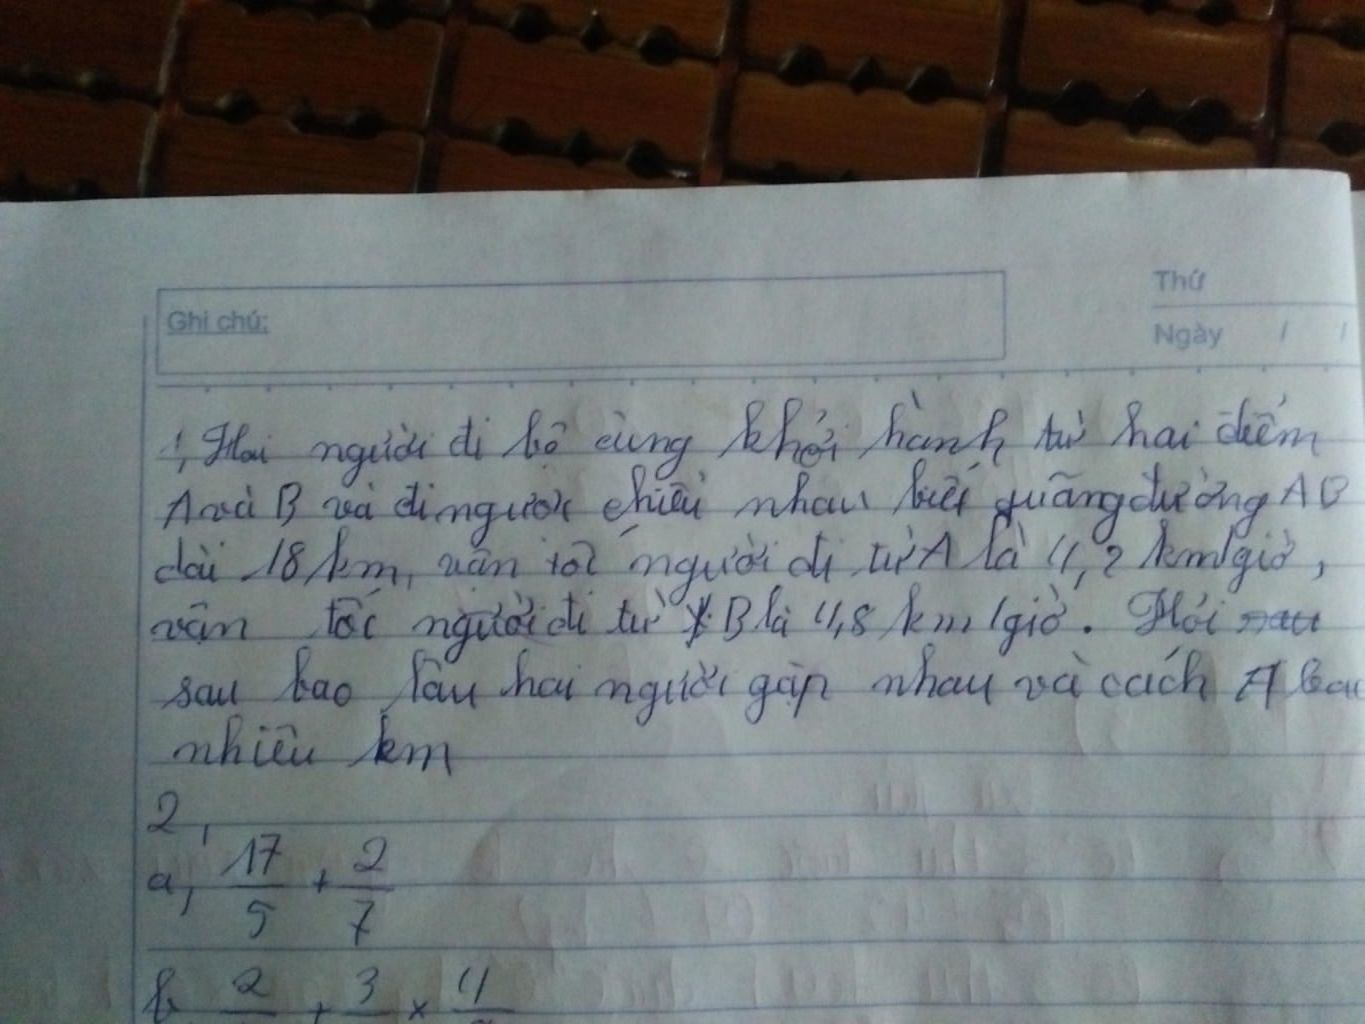 Ghi chú:
Thứ
Ngày / /
1, Hai người đi bộ cùng khởi hành từ hai điểm
A và B và đi ngược chiều nhau biết quãng đường AB
dài 18 km, vận tốc người đi từ A là 4,2 km/giờ,
vận tốc người đi từ B là 4,8 km/giờ. Hỏi
sau bao lâu hai người gặp nhau và cách A bao
nhiêu km
2,
a, 17/5 + 2/7
b 2 + 3 × 4